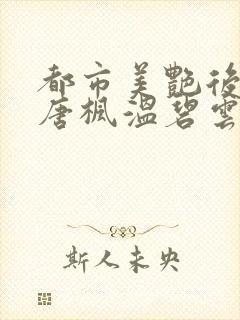 都市美艷後
唐楓溫碧雲
斯人未央